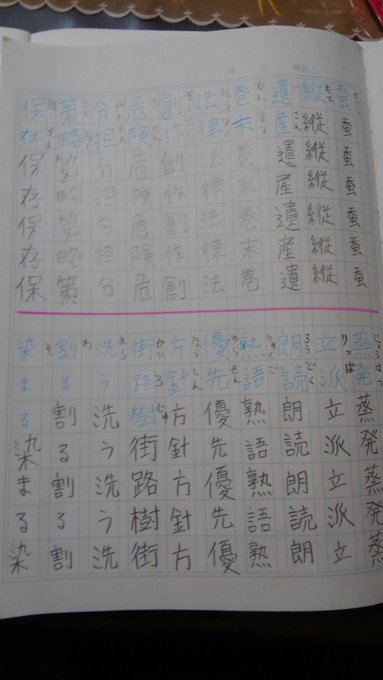 月 日
蚕蚕蚕蚕蚕蚕蚕
縦縦縦縦縦縦縦
遺産遺産遺産遺
巻末巻末巻末巻
法律法律法律法
創作創作創作創
危険危険危険危
分担分担分担分
策略策略策略策
保存保存保存保
蒸発蒸発蒸発蒸
りっぱ
立派立派立派立
ろうどく
朗読朗読朗読朗
じゅくご
熟語熟語熟語熟
ゆうせん
優先優先優先優
方針方針方針方
街路樹街路樹街
あら
洗う洗う洗う洗
わ
割る割る割る割
そ
染まる染まる染